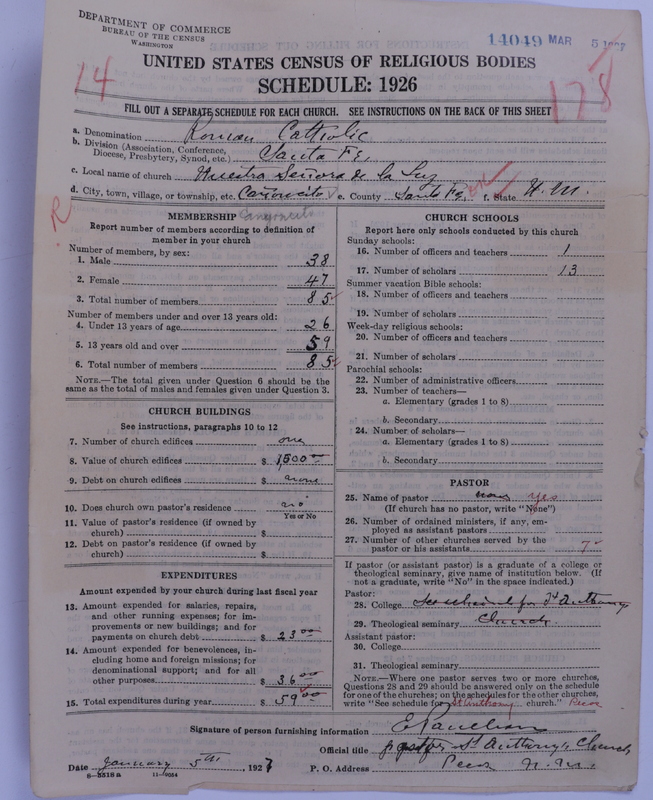 DEPARTMENT OF COMMERCE
BUREAU OF THE CENSUS
WASHINGTON
14049 MAR 5 1927
UNITED STATES CENSUS OF RELIGIOUS BODIES
SCHEDULE: 1926
14
178
FILL OUT A SEPARATE SCHEDULE FOR EACH CHURCH. SEE INSTRUCTIONS ON THE BACK OF THIS SHEET
a. Denomination Roman Catholic
b. Division (Association, Conference, Diocese, Presbytery, Synod, etc.) Santa Fe,
c. Local name of church Nuestra Señora de la Luz
d. City, town, village, or township, etc. Cañoncito e. County Santa Fe, f. State N.M.
R
MEMBERSHIP Canyoncito
Report number of members according to definition of
member in your church
Number of members, by sex:
1. Male 38
2. Female 47
3. Total number of members 85
Number of members under and over 13 years old:
4. Under 13 years of age 26
5. 13 years old and over 59
6. Total number of members 85
NOTE.—The total given under Question 6 should be
same as the total of males and females given under Question 3.
CHURCH BUILDINGS
See instructions, paragraphs 10 to 12
7. Number of church edifices one
8. Value of church edifices $ 1,500 00
9. Debt on church edifices $ none
10. Does church own pastor's residence no
Yes or No
11. Value of pastor's residence (if owned by
church) $
12. Debt on pastor's residence (if owned by
church) $
EXPENDITURES
Amount expended by your church during last fiscal year
13. Amount expended for salaries, repairs,
and other running expenses; for im-
provements or new buildings; and for
payments on church debt $ 23 00
14. Amount expended for benevolences, in-
cluding home and foreign missions; for
denominational support; and for all
other purposes $ 36 00
15. Total expenditures during year $ 59 00
CHURCH SCHOOLS
Report here only schools conducted by this church
Sunday schools:
16. Number of officers and teachers 1
17. Number of scholars 13
Summer vacation Bible schools:
18. Number of officers and teachers
19. Number of scholars
Week-day religious schools:
20. Number of officers and teachers
21. Number of scholars
Parochial schools:
22. Number of administrative officers
23. Number of teachers—
a. Elementary (grades 1 to 8)
b. Secondary
24. Number of scholars—
a. Elementary (grades 1 to 8)
b. Secondary
PASTOR
25. Name of pastor none yes
(If church has no pastor, write "None")
26. Number of ordained ministers, if any, em-
ployed as assistant pastors
27. Number of other churches served by the
pastor or his assistants 7
If pastor (or assistant pastor) is a graduate of a college or
theological seminary, give name of institution below. (If
not a graduate, write "No" in the space indicated.)
Pastor:
28. College See schedule for St Anthony
29. Theological seminary Church
Assistant pastor:
30. College
31. Theological seminary
NOTE.—Where one pastor serves two or more churches,
Questions 28 and 29 should be answered only on the schedule
for one of the churches; on the schedules for the other churches,
write "See schedule for St Anthony church." Pecos
Signature of person furnishing information
Official title pastor St Anthony's Church
Date January 5th, 1927 P. O. Address Pecos N.M.
8—3518a 11—9084